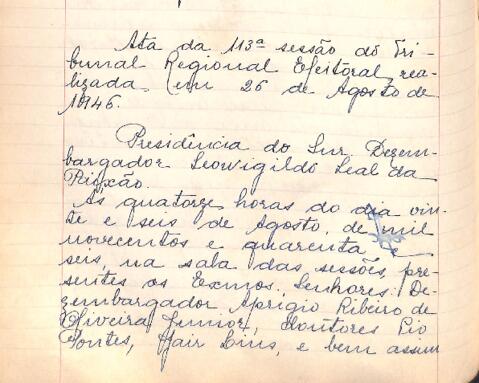 Ata da 113ª sessão do Tri-
bunal Regional Eleitoral, rea-
lizada em 26 de Agosto de
1946.
Presidência do Snr. Dezem-
bargador Leovigildo Leal da
Paixão.
Ás quatorze horas do dia vin-
te e seis de Agosto, de mil
novecentos e quarenta e
seis, na sala das sessões, pre-
sentes os Exmos. Senhores: De-
zembargador Aprigio Ribeiro de
Oliveira Junior, Doutores Pio
Pontes, Jair Lins, e bem assim